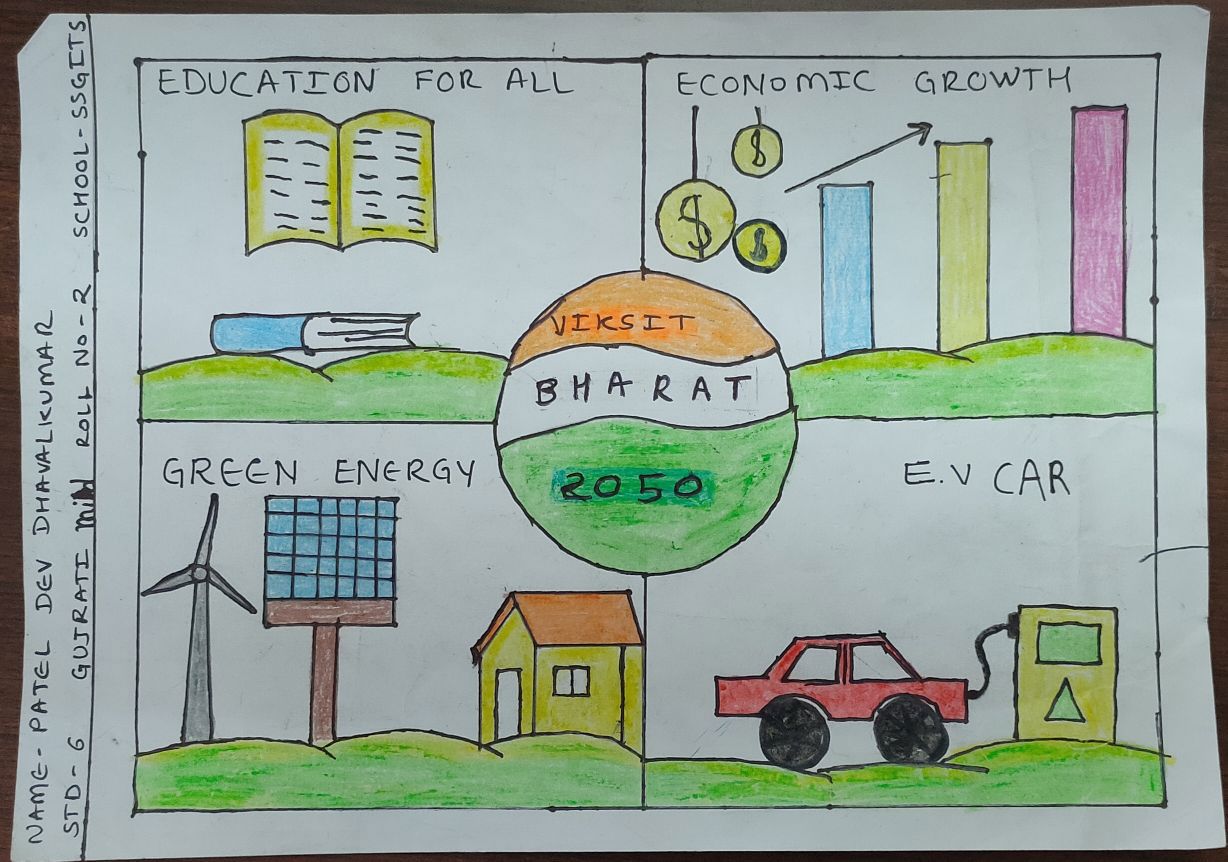 EDUCATION FOR ALL
ECONOMIC GROWTH
$
$
$
VIKSIT
BHARAT
2050
GREEN ENERGY
E.V CAR
NAME-PATEL DEV DHAVALKUMAR
STD-6 GUJRATI ROLL NO-2 SCHOOL-SSGITS